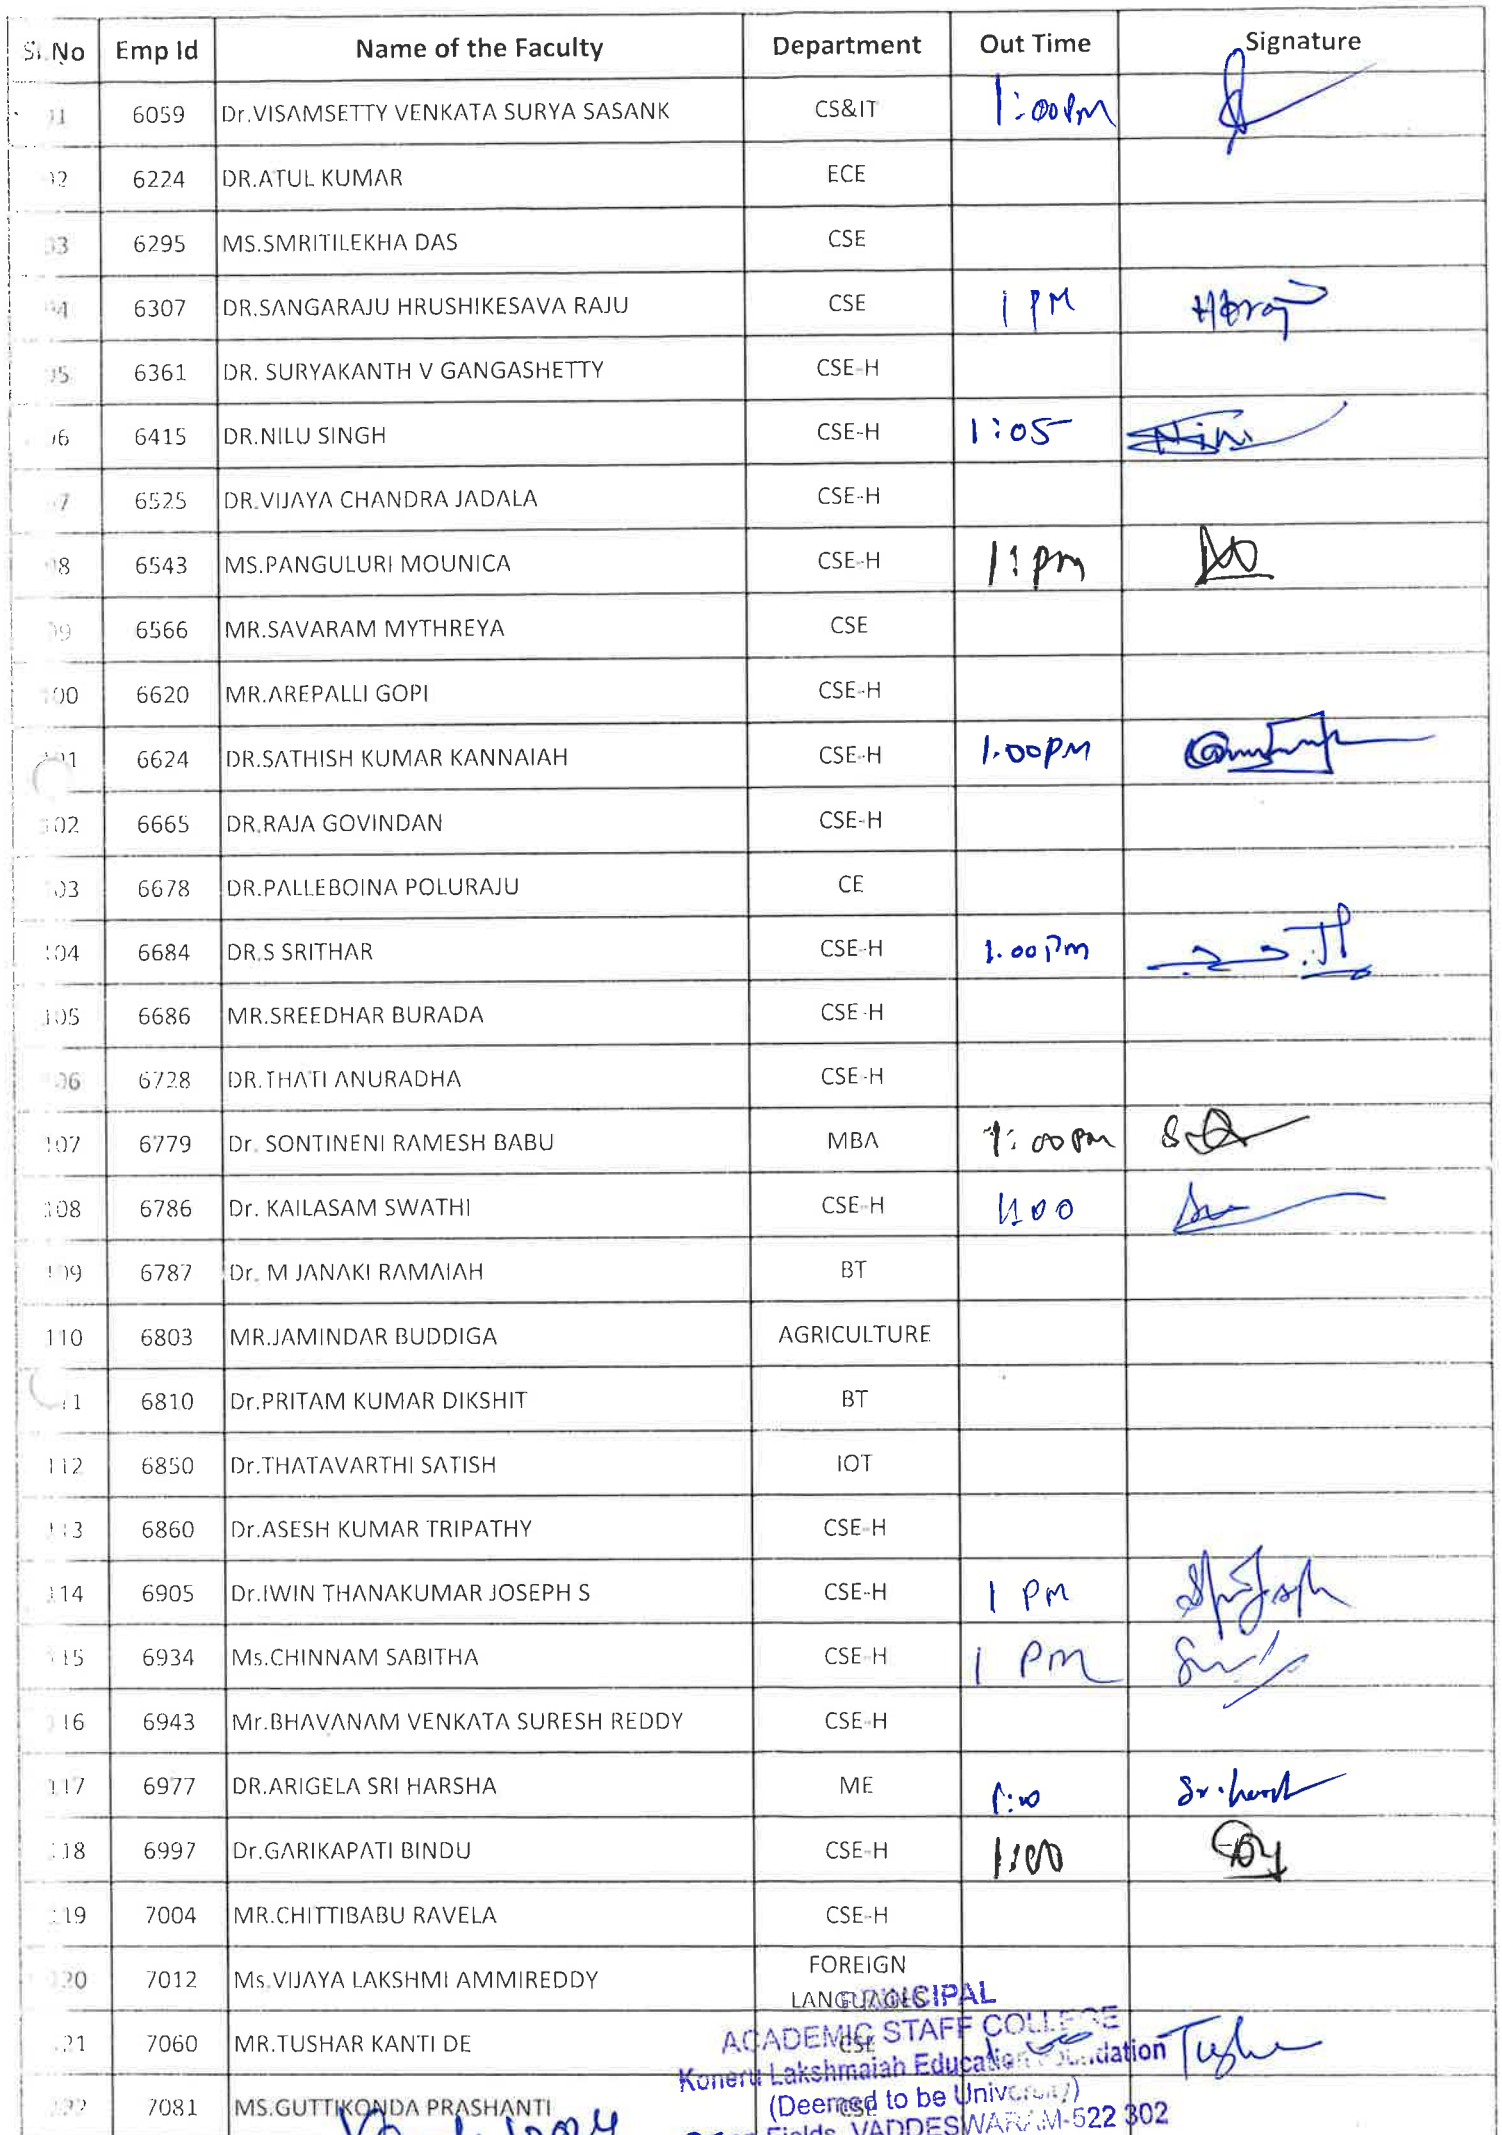 Sl.No Emp Id Name of the Faculty Department Out Time Signature
6059 Dr.VISAMSETTY VENKATA SURYA SASANK CS&IT 1:00PM
6224 DR.ATUL KUMAR ECE
6295 MS.SMRITILEKHA DAS CSE
6307 DR.SANGARAJU HRUSHIKESAVA RAJU CSE 1 PM
6361 DR. SURYAKANTH V GANGASHETTY CSE-H
6415 DR.NILU SINGH CSE-H 1:05
6525 DR.VIJAYA CHANDRA JADALA CSE-H
6543 MS.PANGULURI MOUNICA CSE-H
6566 MR.SAVARAM MYTHREYA CSE
6620 MR.AREPALLI GOPI CSE-H
6624 DR.SATHISH KUMAR KANNAIAH CSE-H 1.00PM
102 6665 DR.RAJA GOVINDAN CSE-H
6678 DR.PALLEBOINA POLURAJU CE
104 6684 DR.S SRITHAR CSE-H 1.00Pm
105 6686 MR.SREEDHAR BURADA CSE-H
6728 DR.THATI ANURADHA CSE-H
107 6779 Dr. SONTINENI RAMESH BABU MBA 1:00pm
108 6786 Dr. KAILASAM SWATHI CSE-H
109 6787 Dr. M JANAKI RAMAIAH BT
110 6803 MR.JAMINDAR BUDDIGA AGRICULTURE
6810 Dr.PRITAM KUMAR DIKSHIT BT
112 6850 Dr.THATAVARTHI SATISH IOT
113 6860 Dr.ASESH KUMAR TRIPATHY CSE-H
114 6905 Dr.IWIN THANAKUMAR JOSEPH S CSE-H 1 PM
115 6934 Ms.CHINNAM SABITHA CSE-H 1 Pm
116 6943 Mr.BHAVANAM VENKATA SURESH REDDY CSE-H
117 6977 DR.ARIGELA SRI HARSHA ME 1:00
118 6997 Dr.GARIKAPATI BINDU CSE-H 1:00
119 7004 MR.CHITTIBABU RAVELA CSE-H
7012 Ms.VIJAYA LAKSHMI AMMIREDDY FOREIGN
LANGUAGES
PRINCIPAL
7060 MR.TUSHAR KANTI DE CSE
ACADEMIC STAFF COLLEGE
Koneru Lakshmaiah Education Foundation
7081 MS.GUTTIKONDA PRASHANTI CSE
(Deemed to be University)
Fields, VADDESWARAM-522 302